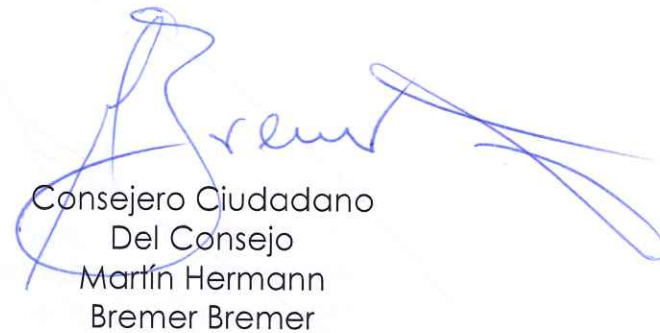 Bremer
Consejero Ciudadano
Del Consejo
Martín Hermann
Bremer Bremer